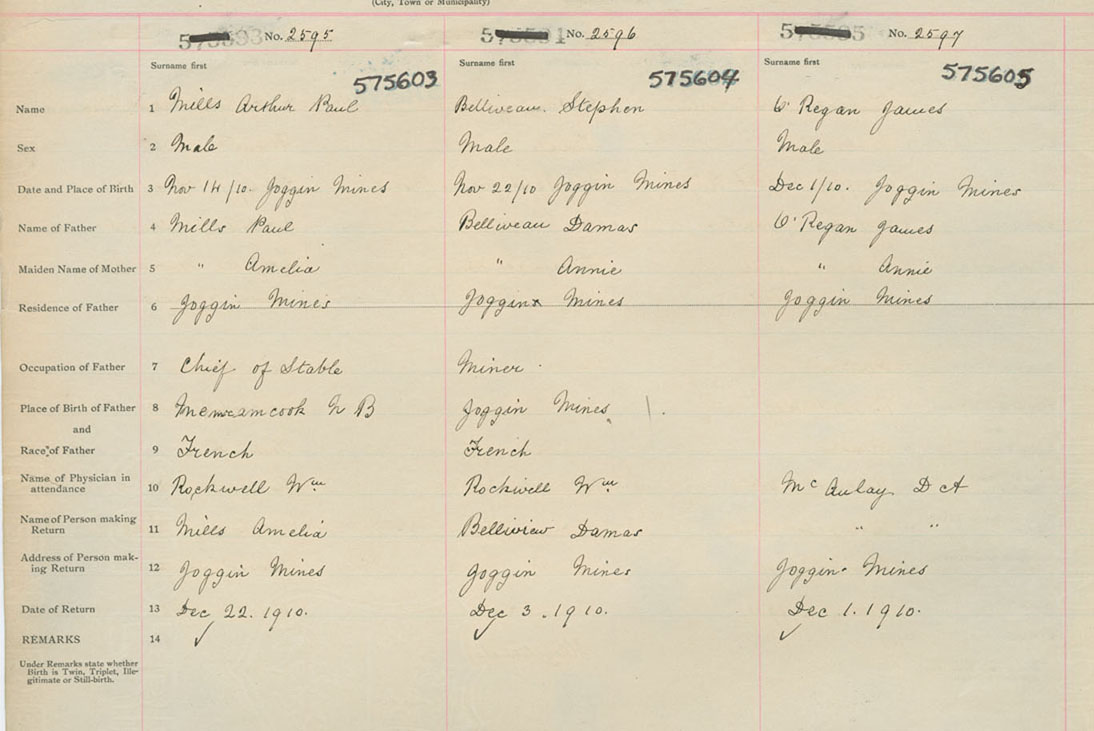 (City, Town or Municipality)
No. 2595 No. 2596 No. 2597
Surname first Surname first Surname first
575603 575604 575605
Name 1 Mills Arthur Paul Belliveau. Stephen O'Regan James
Sex 2 Male Male Male
Date and Place of Birth 3 Nov 14/10. Joggin Mines Nov 22/10 Joggin Mines Dec 1/10. Joggin Mines
Name of Father 4 Mills Paul Belliveau Damas O'Regan James
Maiden Name of Mother 5 " Amelia " Annie " Annie
Residence of Father 6 Joggin Mines Joggin Mines Joggin Mines
Occupation of Father 7 Chief of Stable Miner
Place of Birth of Father 8 N B Joggin Mines
and
Race of Father 9 French French
Name of Physician in
attendance 10 Rockwell Wm Rockwell Wm Mc Aulay D A
Name of Person making
Return 11 Mills Amelia Belliview Damas " "
Address of Person mak-
ing Return 12 Joggin Mines Joggin Mines Joggin Mines
Date of Return 13 Dec 22. 1910. Dec 3. 1910. Dec 1. 1910.
REMARKS 14 ✓ ✓ ✓
Under Remarks state whether
Birth is Twin, Triplet, Ille-
gitimate or Still-birth.